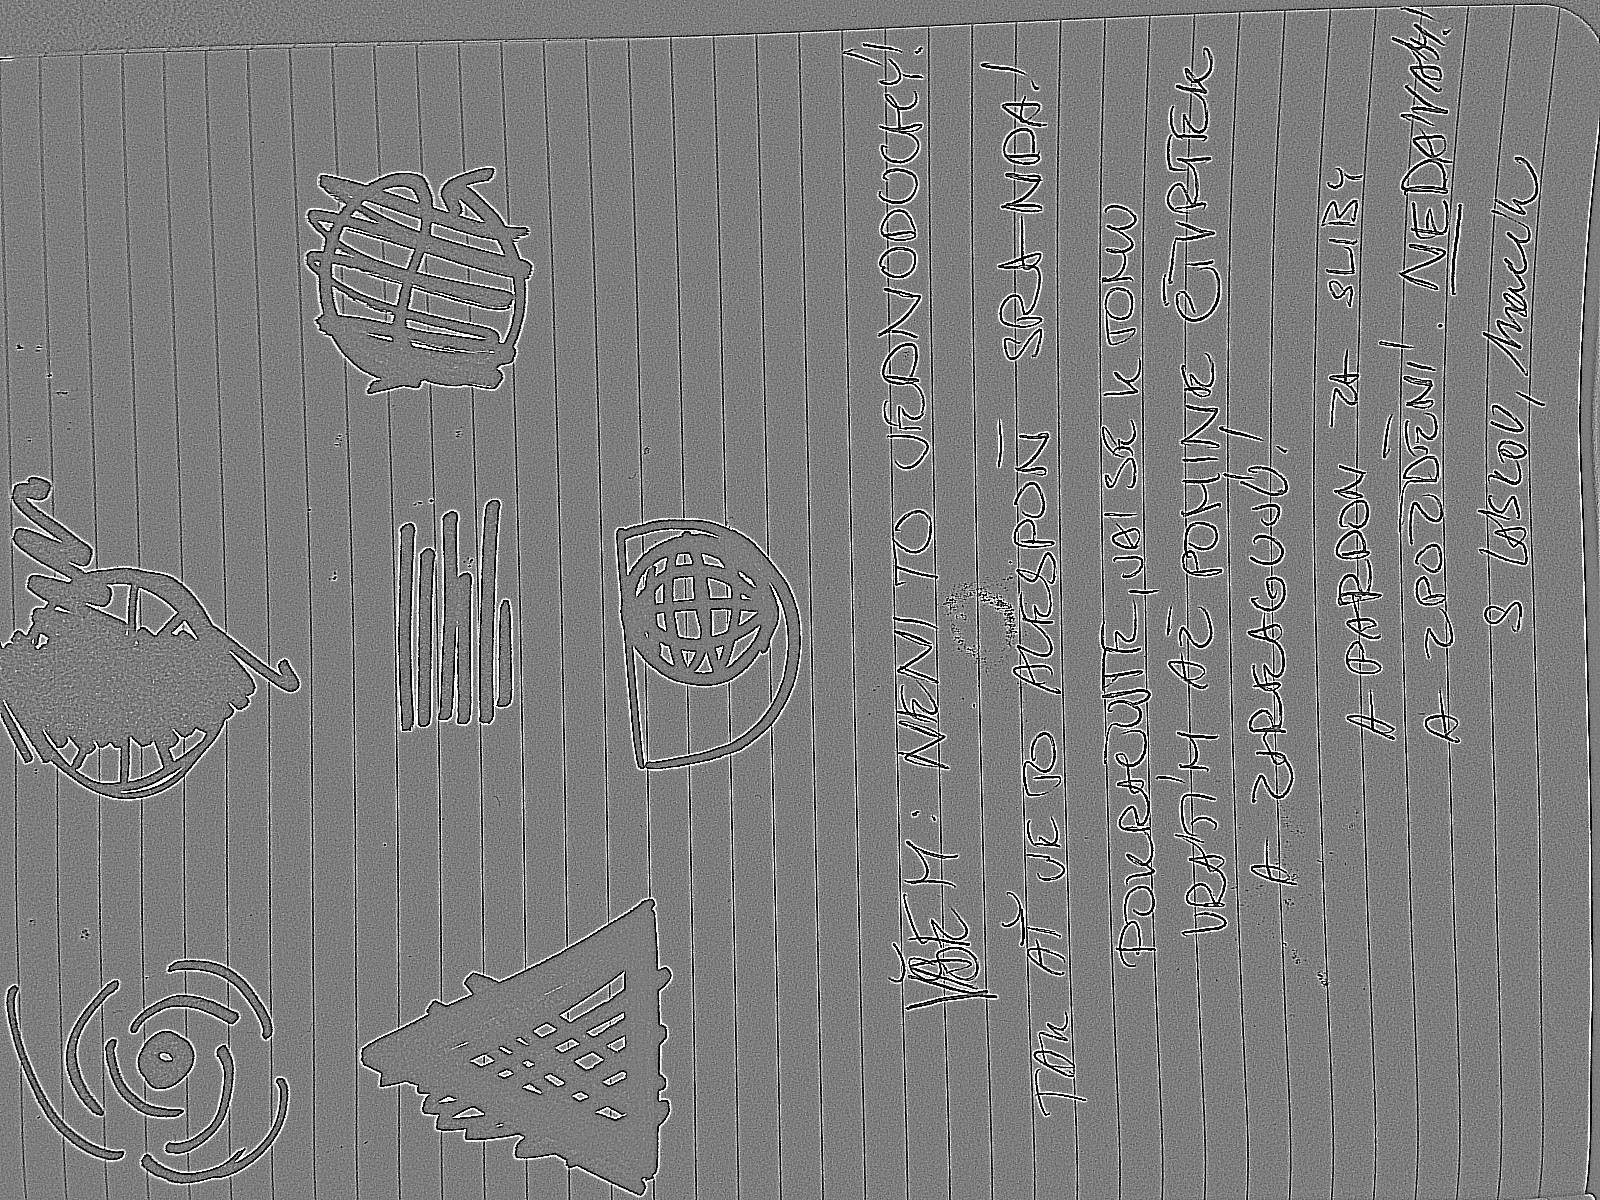 VŠEM: NENI TO JEDNODUCHÝ!
TAK AŤ JE TO ALESPOŇ SRANDA!
POKRAČUJTE, JAI SE K TOMU
VRATÍM AŽ POMINE ČTVRTEK
A ZAREAGUJU!
A PARDON ZA SLIBY
A ZPOZDĚNÍ. NEDÁVÁM!
S LÁSKOU,